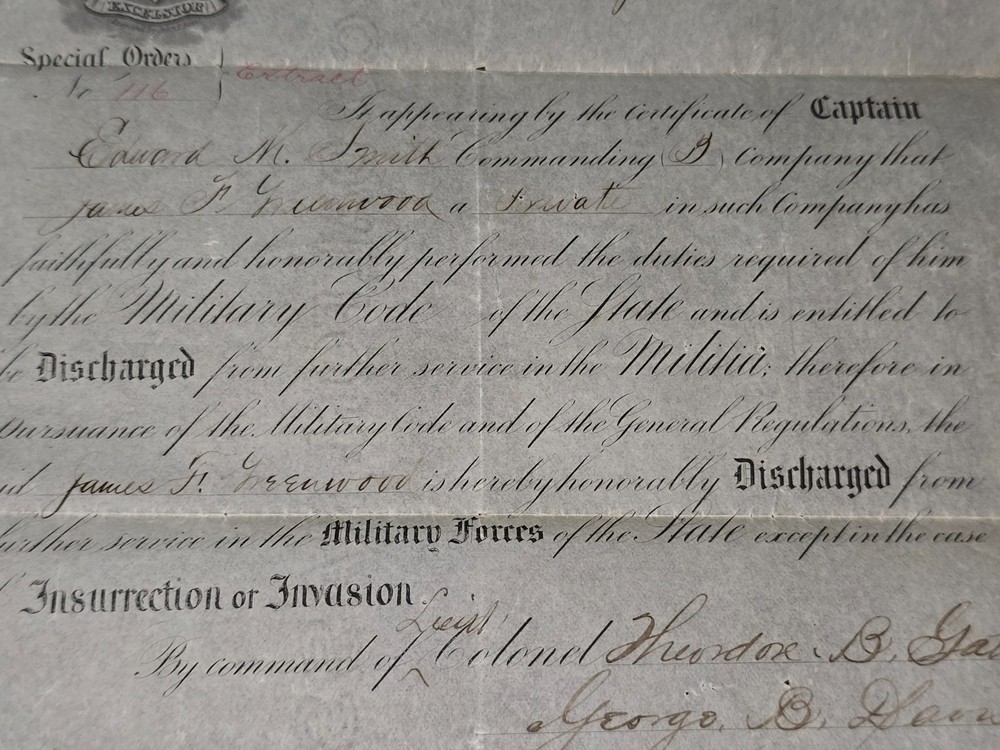 EXCELSIOR
Special Orders
No 116 Extract
It appearing by the Certificate of Captain
Edward M. Smith Commanding (B) Company that
James F. Greenwood a Private in such Company has
faithfully and honorably performed the duties required of him
by the Military Code of the State and is entitled to
be Discharged from further service in the Militia; therefore in
pursuance of the Military Code and of the General Regulations, the
said James F. Greenwood is hereby honorably Discharged from
further service in the Military Forces of the State except in the case
of Insurrection or Invasion.
Lieut
By command of ^ Colonel Theodore B. Ga
George B. Davi